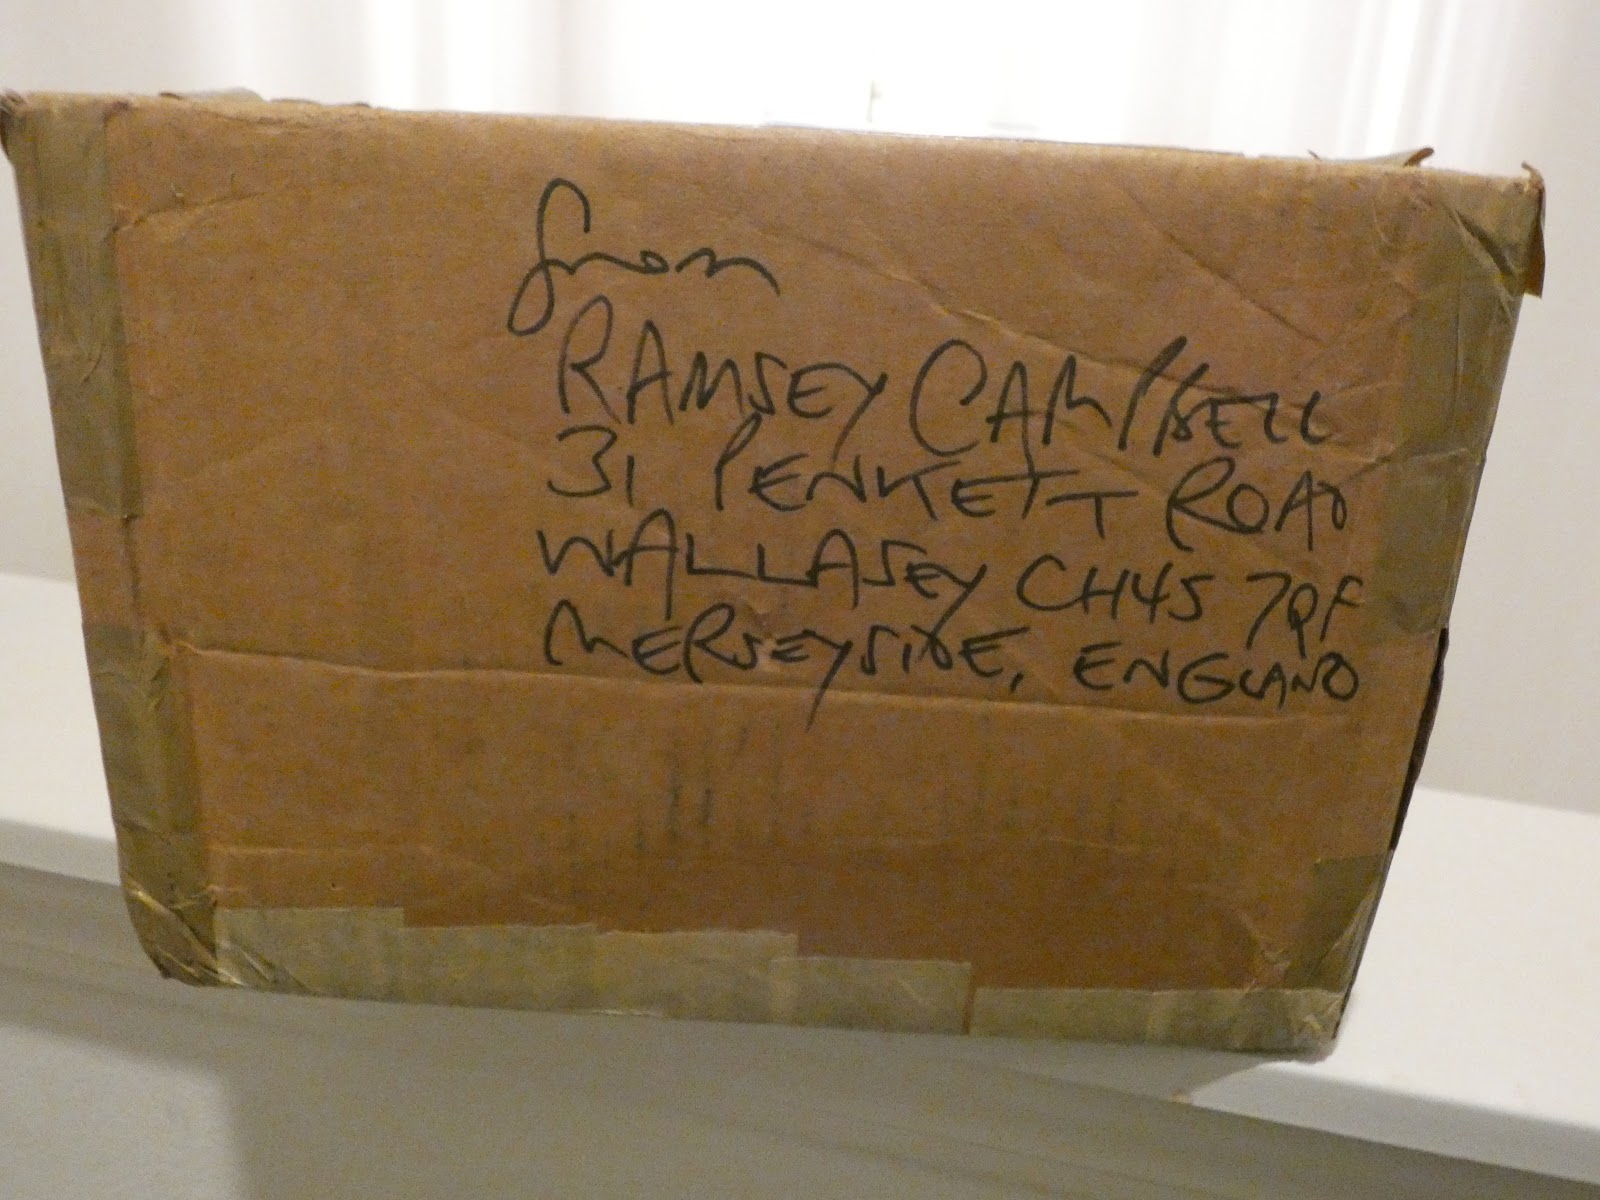 from
RAMSEY CAMPBELL
31 PENKETT ROAD
WALLASEY CH45 7QF
MERSEYSIDE, ENGLAND